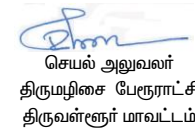 செயல் அலுவலர்
திருமழிசை பேரூராட்சி
திருவள்ளூர் மாவட்டம்